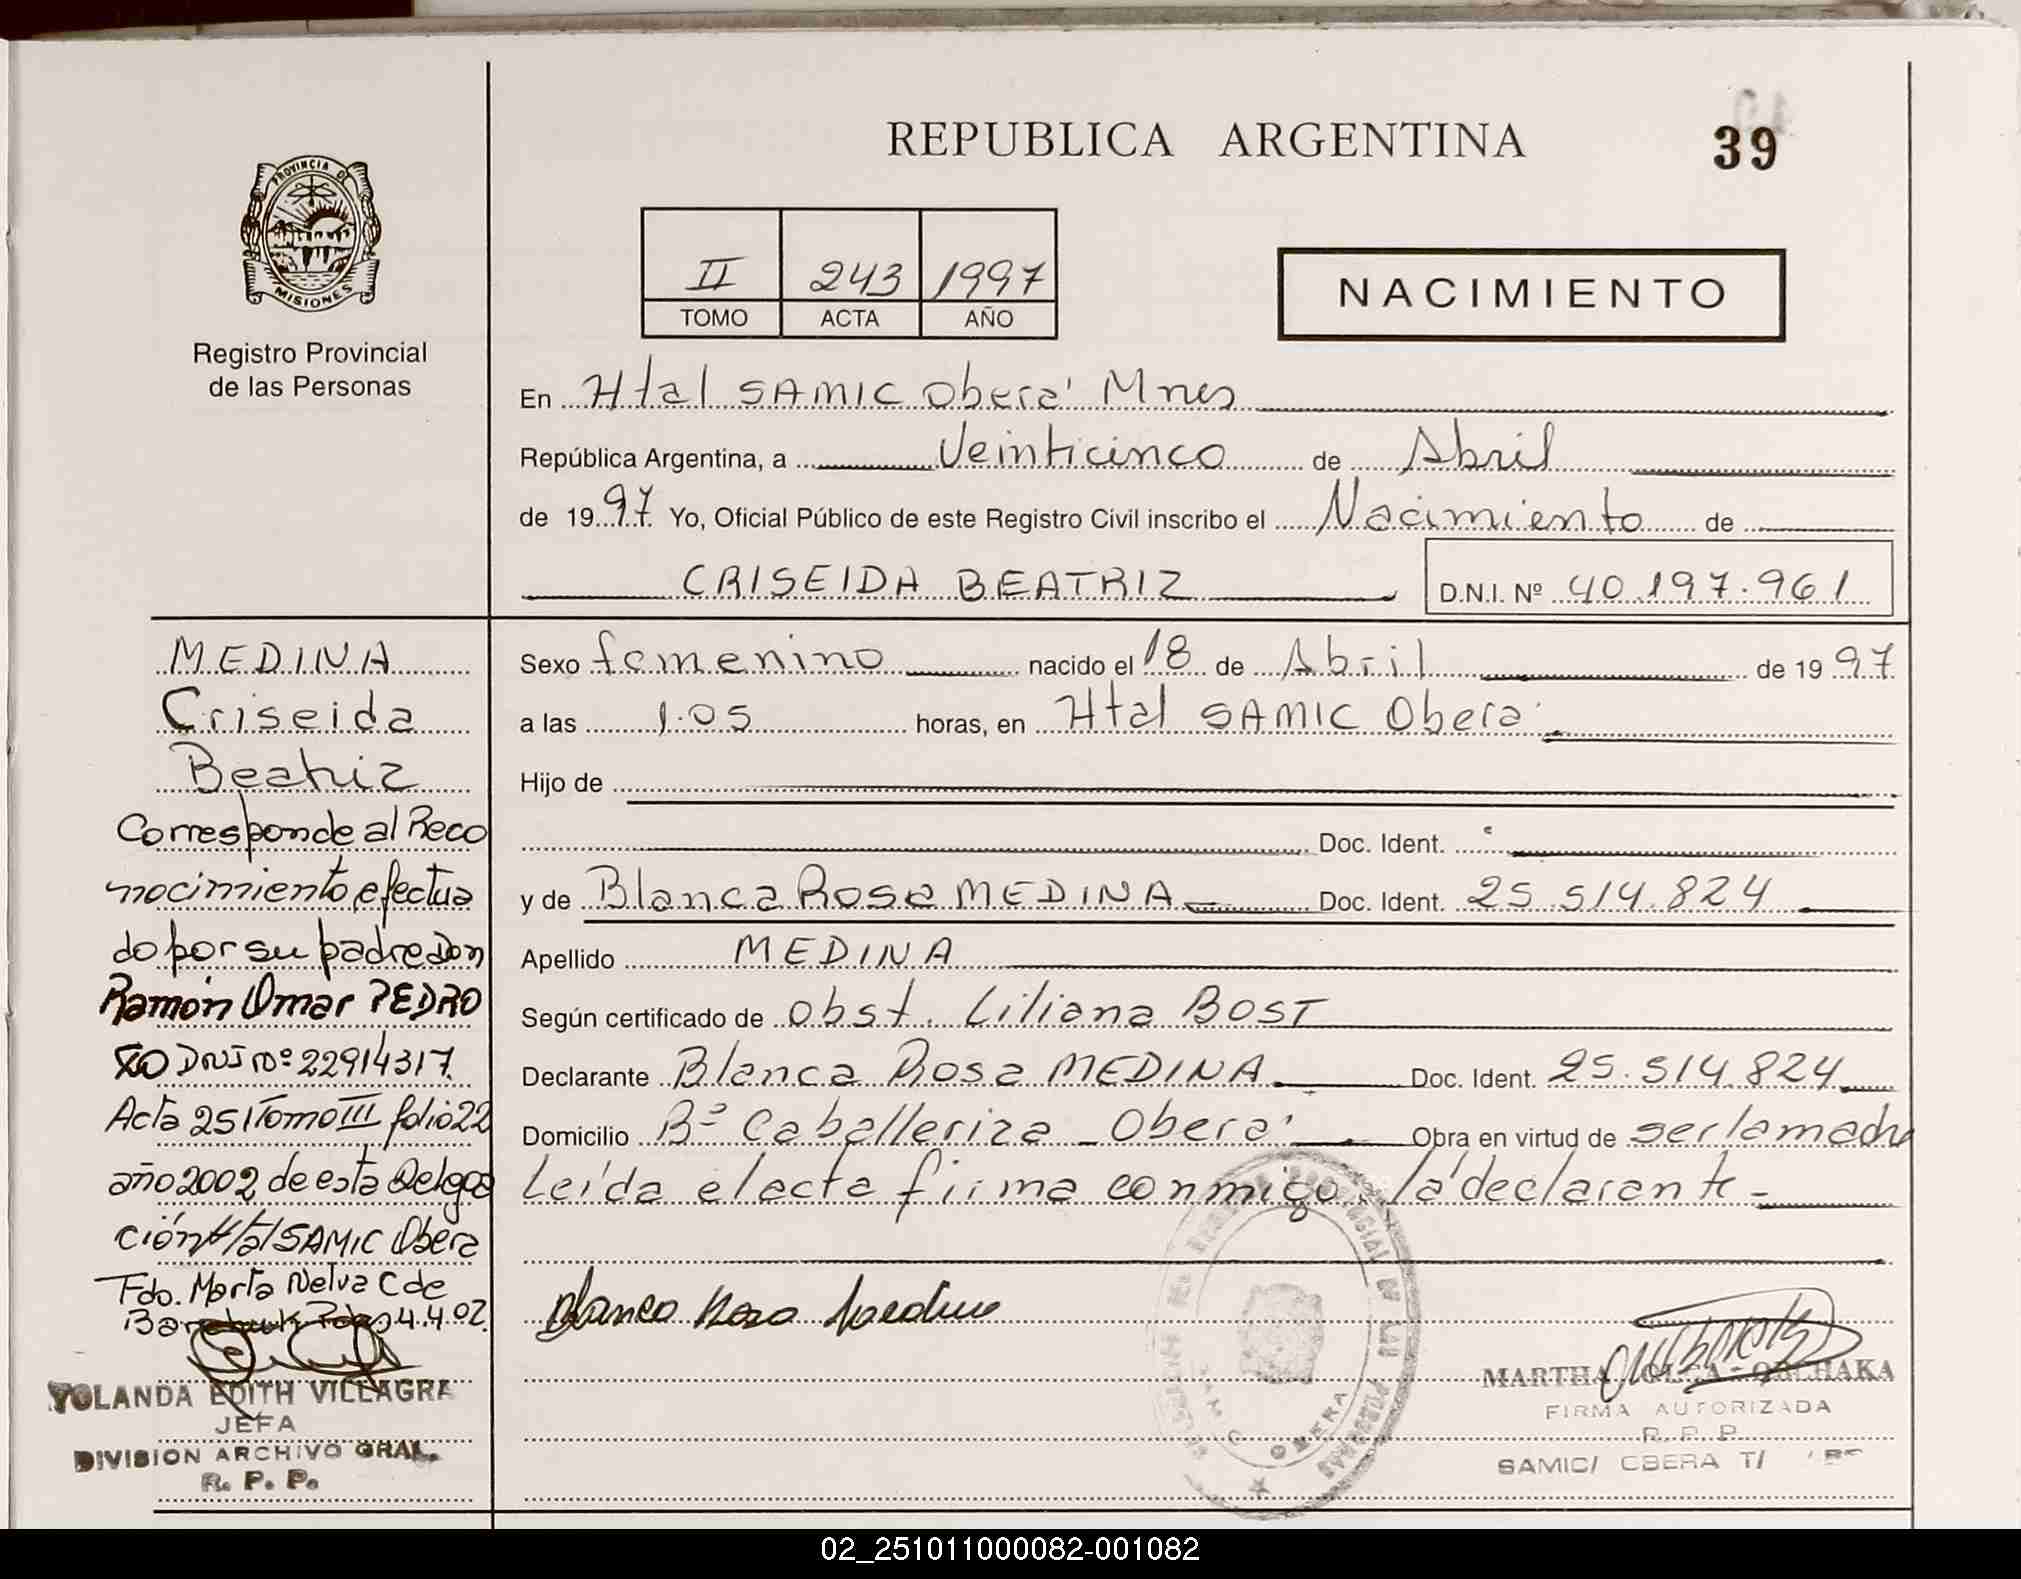 REPUBLICA ARGENTINA
39
PROVINCIA DE
MISIONES
Registro Provincial
de las Personas
II 243 1997
TOMO ACTA AÑO
NACIMIENTO
En Htal SAMIC Oberá Mnes
República Argentina, a Veinticinco de Abril
de 1997 Yo, Oficial Público de este Registro Civil inscribo el Nacimiento de
CRISEIDA BEATRIZ D.N.I. Nº 40.197.961
Sexo femenino nacido el 18 de Abril de 1997
a las 1.05 horas, en Htal SAMIC Oberá
Hijo de
Doc. Ident.
y de Blanca Rosa MEDINA Doc. Ident. 25.514.824
Apellido MEDINA
Según certificado de Obst. Liliana BOST
Declarante Blanca Rosa MEDINA Doc. Ident. 25.514.824
Domicilio Bº Caballeriza - Oberá Obra en virtud de ser la madre
Leída el acta firma conmigo la declarante -
Blanca Rosa Medina
MARTHA OLGA
FIRMA AUTORIZADA
R. P. P.
SAMIC/ OBERA T/
MEDINA
Criseida
Beatriz
Corresponde al Reco
nocimiento efectua
do por su padre Don
Ramón Omar PEDRO
ZO DNI Nº 22914317.
Acta 251 Tomo III folio 22
año 2002 de esta Delega
ción Htal SAMIC Oberá
Fdo. Marta Nelva C de
4.4.02.
YOLANDA EDITH VILLAGRA
JEFA
DIVISION ARCHIVO GRAL.
R. P. P.
02_251011000082-001082